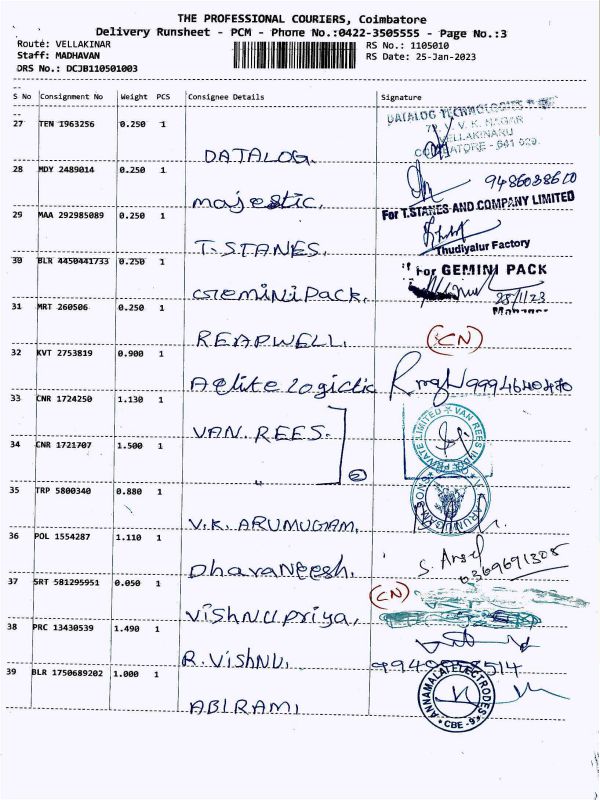 THE PROFESSIONAL COURIERS, Coimbatore
Delivery Runsheet - PCM - Phone No.:0422-3505555 - Page No.:3
Route: VELLAKINAR
RS No.: 1105010
Staff: MADHAVAN
RS Date: 25-Jan-2023
DRS No.: DCJB110501003
S No Consignment No Weight PCS Consignee Details Signature
27 TEN 1963256 0.250 1
DATALOG TECHNOLOGIES
V. K. NAGAR
VELLAKINARU
COIMBATORE - 641 029.
DATALOG.
28 MDY 2489014 0.250 1
9486038610
majestic.
For T.STANES AND COMPANY LIMITED
29 MAA 292985089 0.250 1
T.STANES.
Thudiyalur Factory
30 BLR 4450441733 0.250 1
For GEMINI PACK
GEMINIPack.
31 MRT 260506 0.250 1
REAPWELL.
(CN)
32 KVT 2753819 0.900 1
Aelite Logictic
9994640470
33 CNR 1724250 1.130 1
VAN REES.
VAN REES INDIA PRIVATE LIMITED
34 CNR 1721707 1.500 1
"
2
35 TRP 5800340 0.880 1
V.K. ARUMUGAM.
36 POL 1554287 1.110 1
Dhavaneesh.
37 SRT 581295951 0.050 1
(CN)
VISHNUPRIYA.
38 PRC 13430539 1.490 1
R.VISHNU.
39 BLR 1750689202 1.000 1
ABIRAMI
ANNAMALAI ELECTRODES
CBE - 9